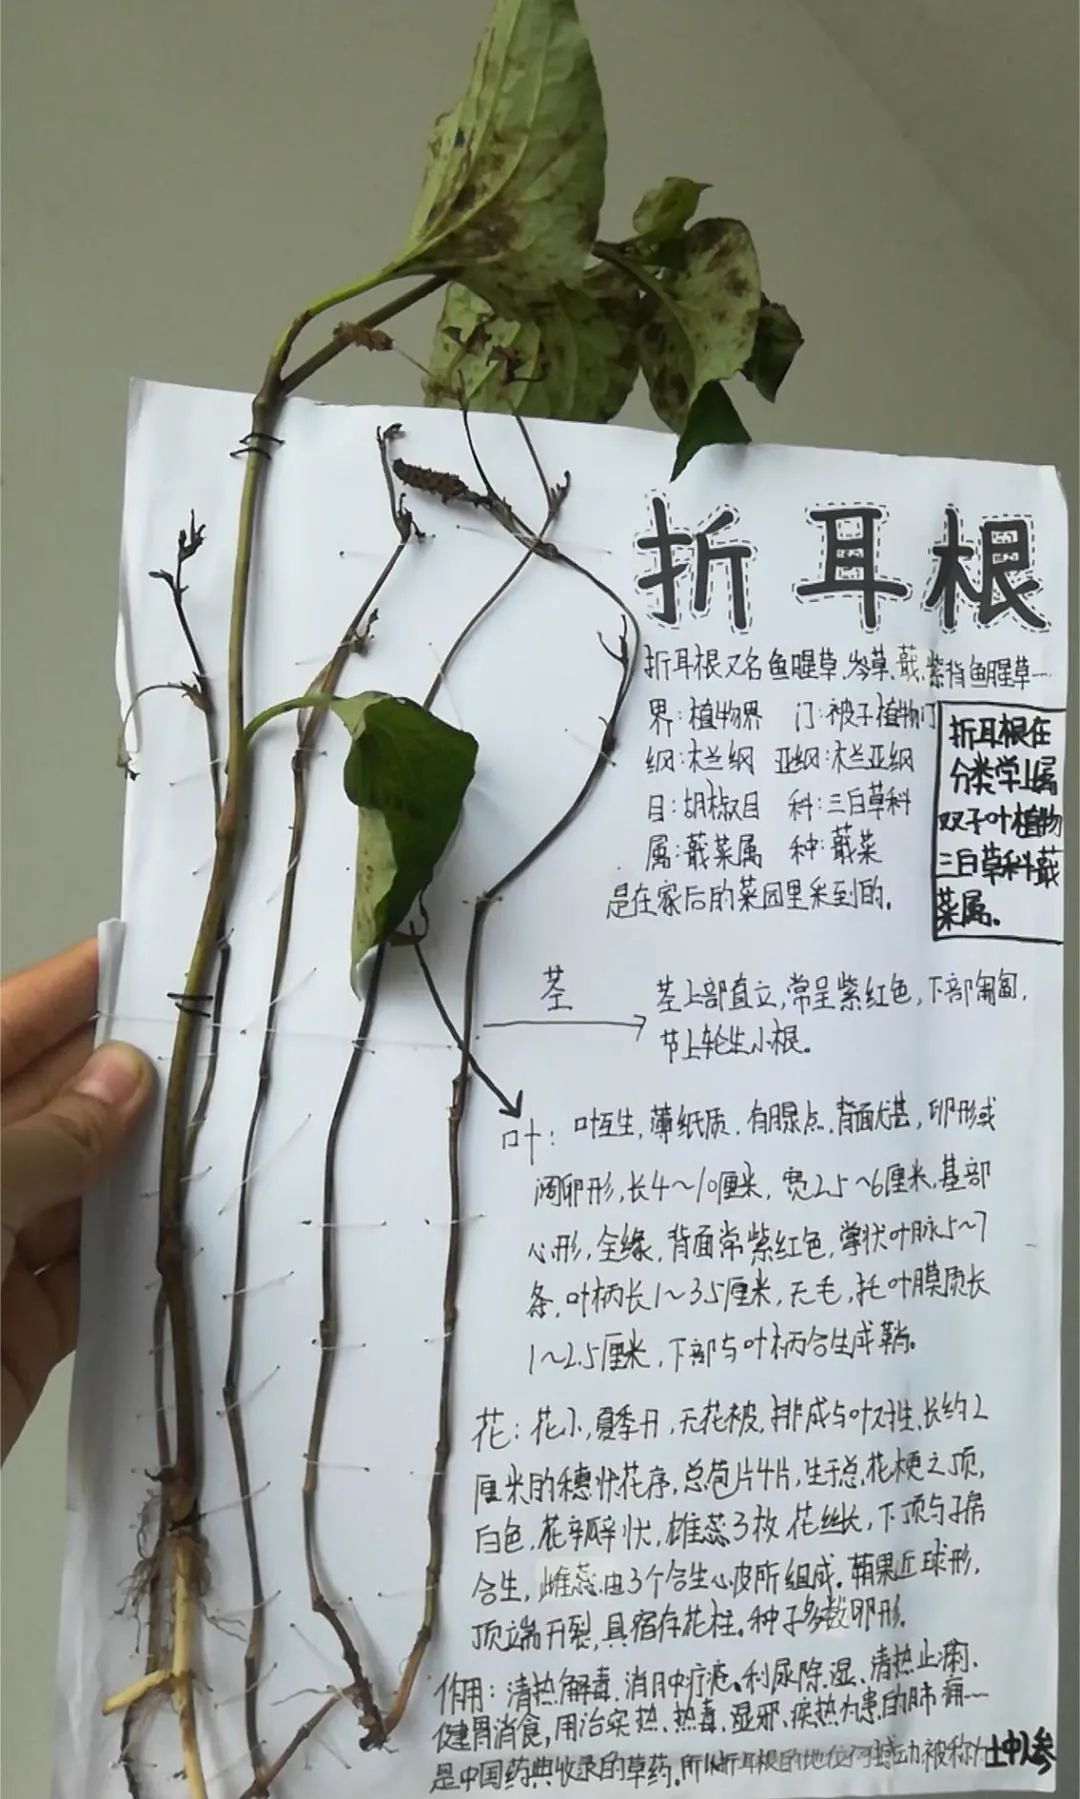 折耳根
折耳根又名鱼腥草、岑草、蕺、紫背鱼腥草…
界:植物界 门:被子植物门
纲:木兰纲 亚纲:木兰亚纲
目:胡椒目 科:三白草科
属:蕺菜属 种:蕺菜
是在家后的菜园里采到的。
折耳根在
分类学上属
双子叶植物
三白草科蕺
菜属。
茎
茎上部直立,常呈紫红色,下部匍匐,
节上轮生小根。
叶:叶互生,薄纸质,有腺点,背面尤甚,卵形或
阔卵形,长4~10厘米,宽2.5~6厘米,基部
心形,全缘,背面常紫红色,掌状叶脉5~7
条,叶柄长1~3.5厘米,无毛,托叶膜质长
1~2.5厘米,下部与叶柄合生成鞘。
花:花小,夏季开,无花被,排成与叶对生、长约2
厘米的穗状花序,总苞片4片,生于总花梗之顶,
白色,花瓣状,雄蕊3枚,花丝长,下顶与子房
合生,雌蕊由3个合生心皮所组成。蒴果近球形,
顶端开裂,具宿存花柱。种子多数卵形。
作用:清热解毒、消肿疗疮、利尿除湿、清热止痢、
健胃消食,用治实热、热毒、湿邪、疾热为患的肺痈…
是中国药典收录的草药。所以折耳根的地位 被称为土中人参